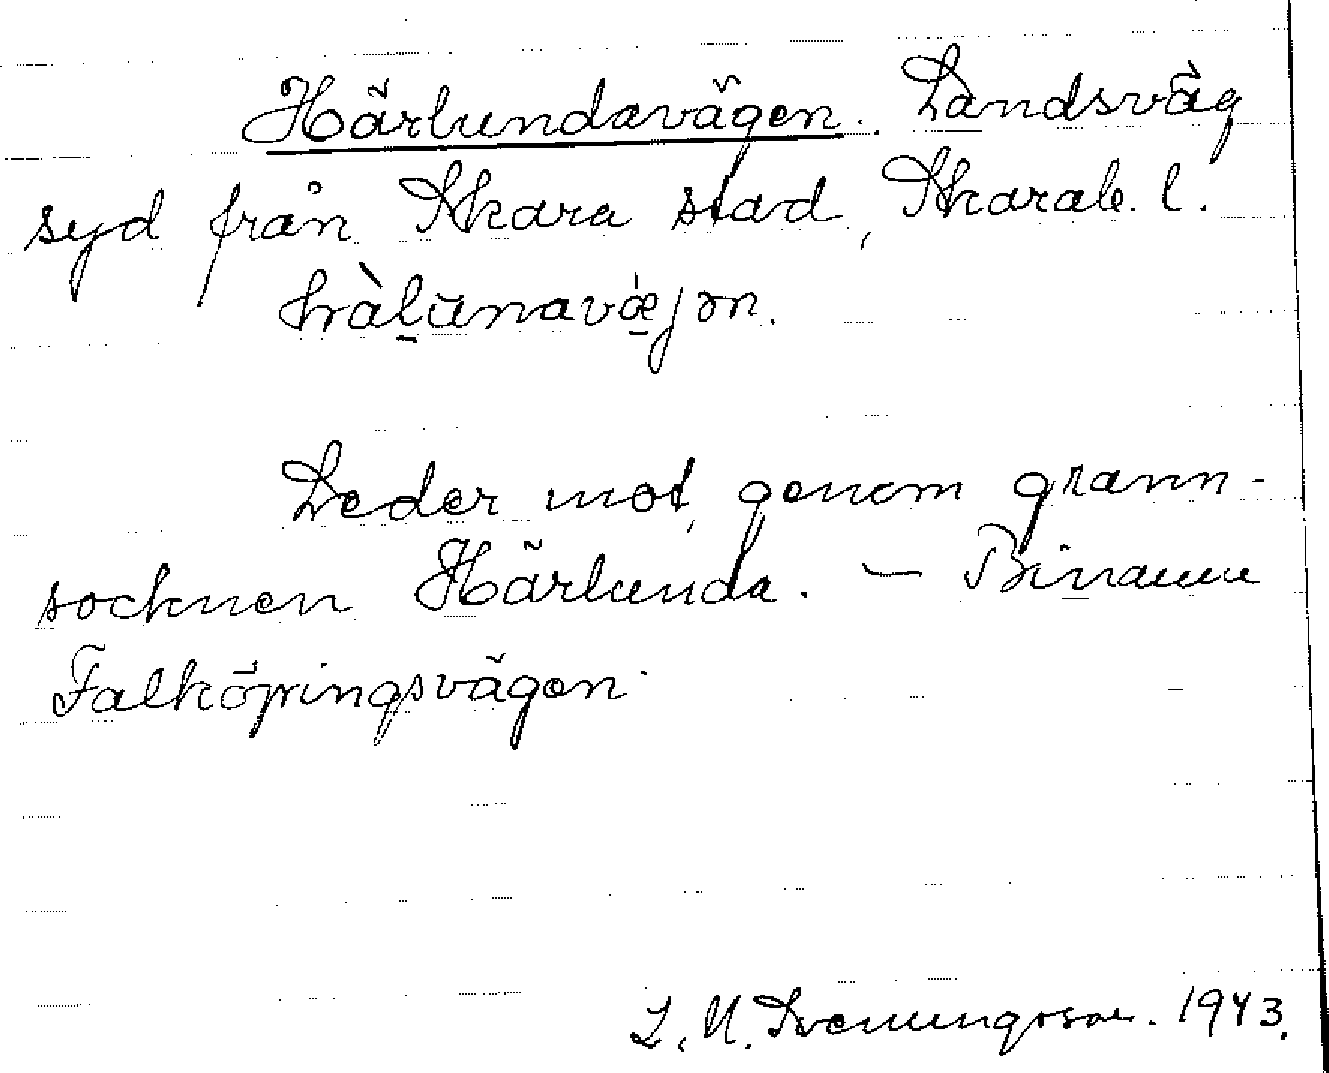 Härlundavägen. Landsväg
syd från Skara stad, Skarab. l.
hàlunavæjɘn.
Leder mot, genom grann-
socknen Härlunda. – Binamn
Falköpingsvägen.
1943.